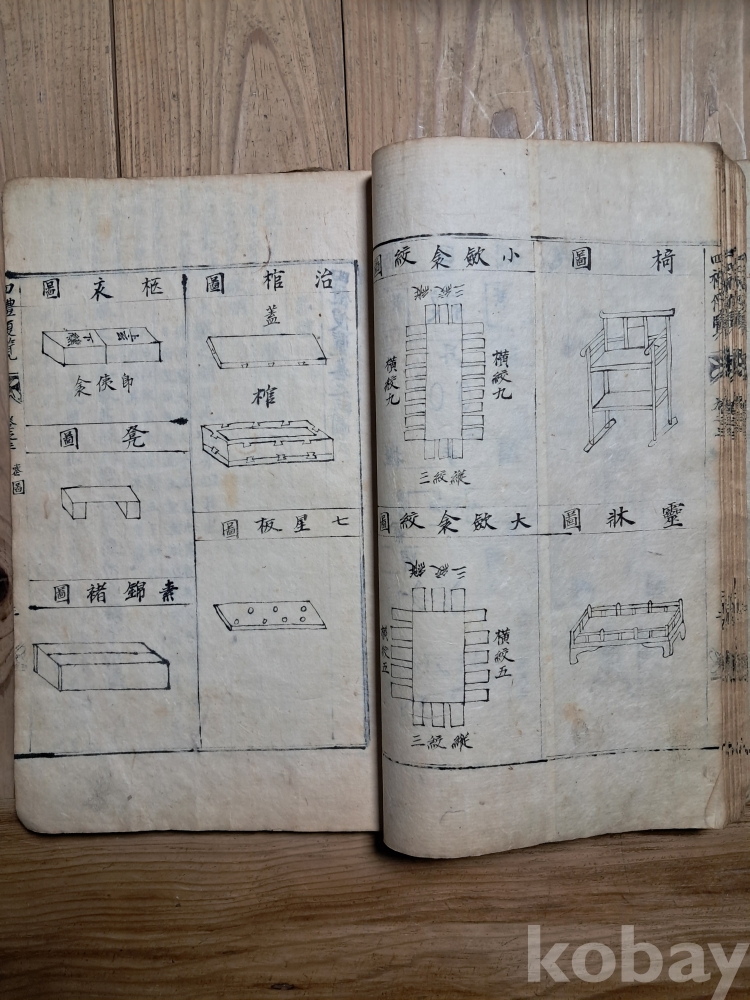 椅圖
靈牀圖
小斂衾絞圖
縱絞三
橫絞九
橫絞九
縱絞三
大斂衾絞圖
縱絞三
橫絞五
橫絞五
縱絞三
治棺圖
蓋
棺
七星板圖
柩衣圖
即俠衾
凳圖
素錦褚圖
四禮便覽
kobay